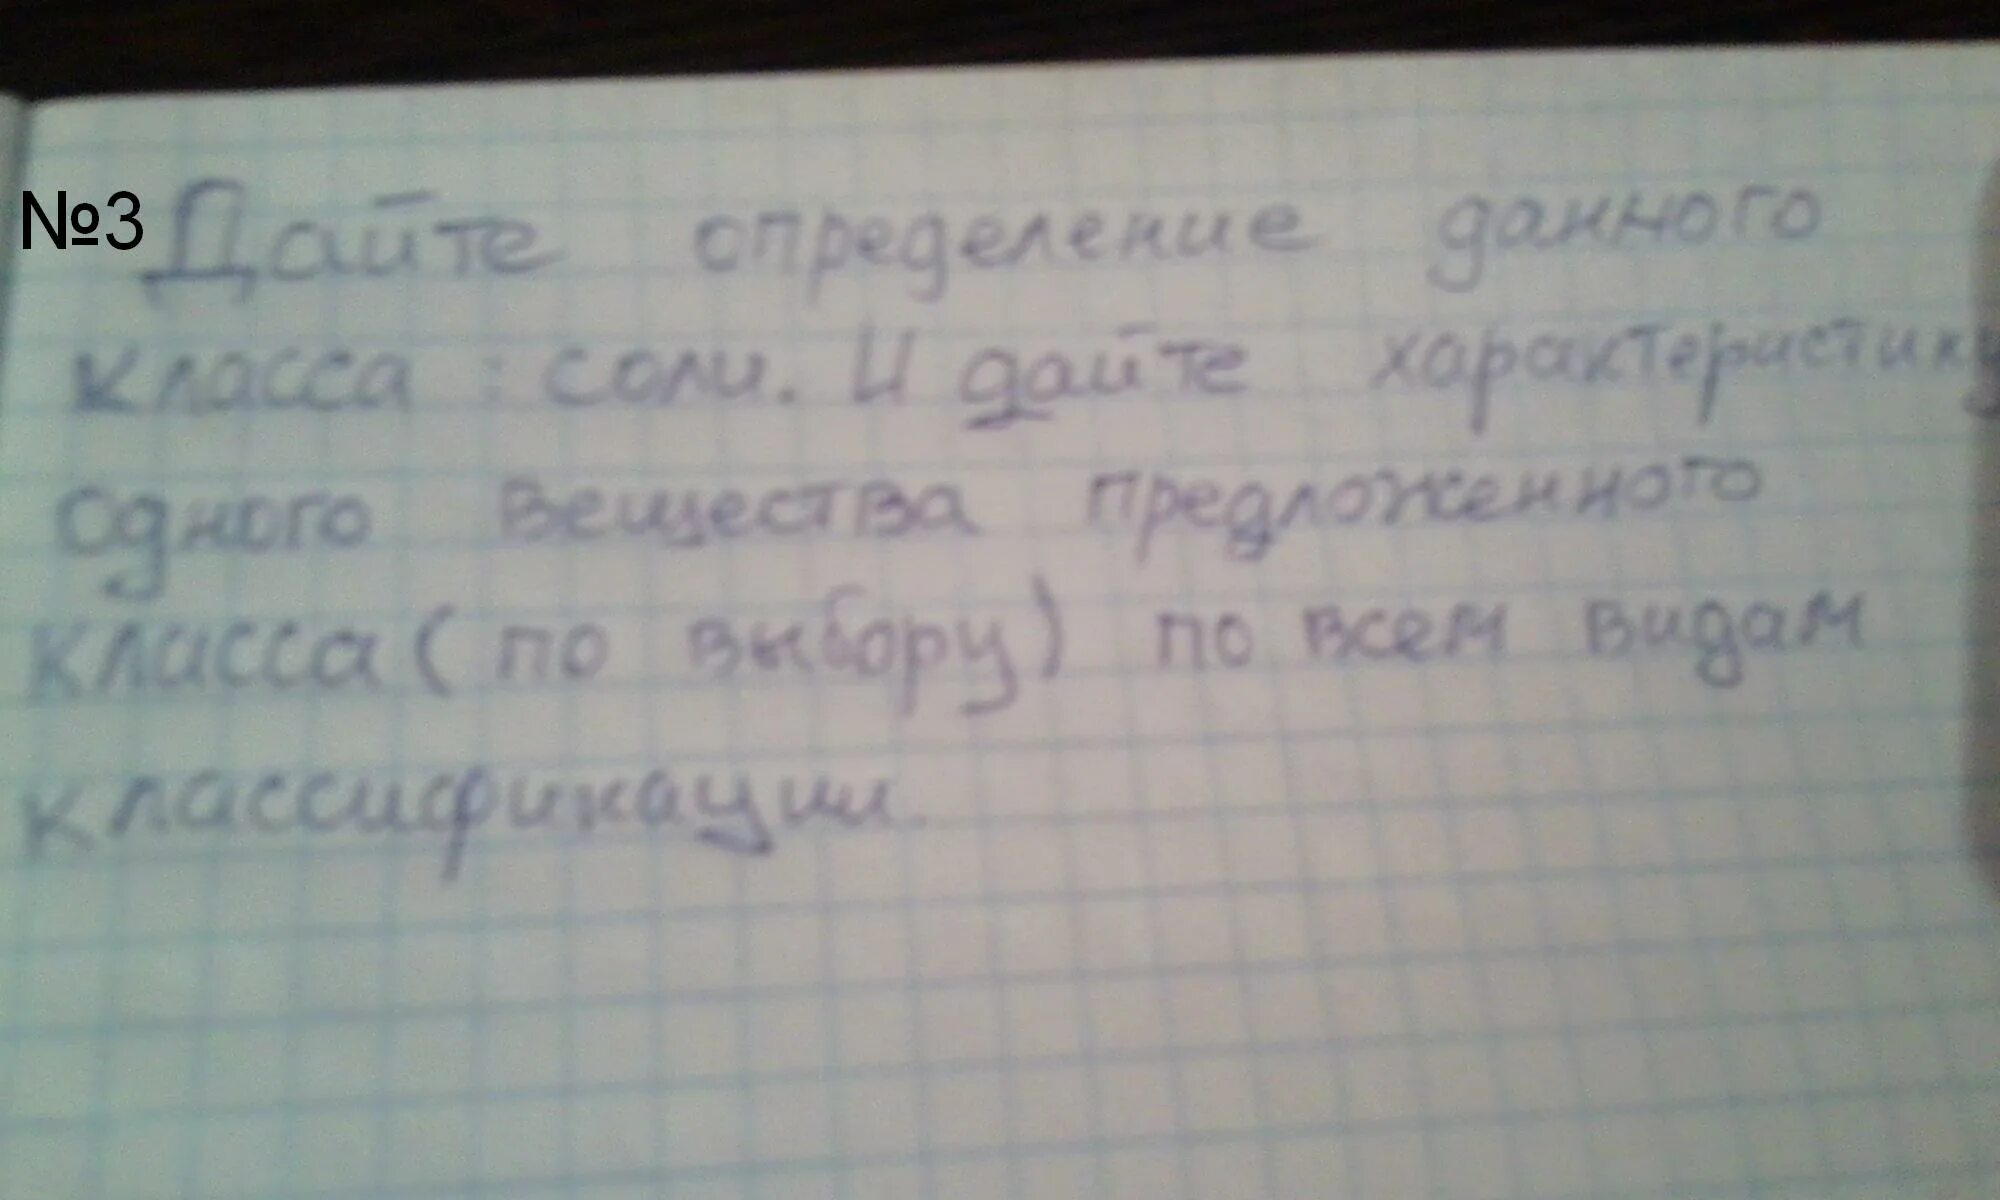 №3 Дайте определение данного
класса : соли. И дайте характеристику
одного вещества предложенного
класса ( по выбору) по всем видам
классификации.